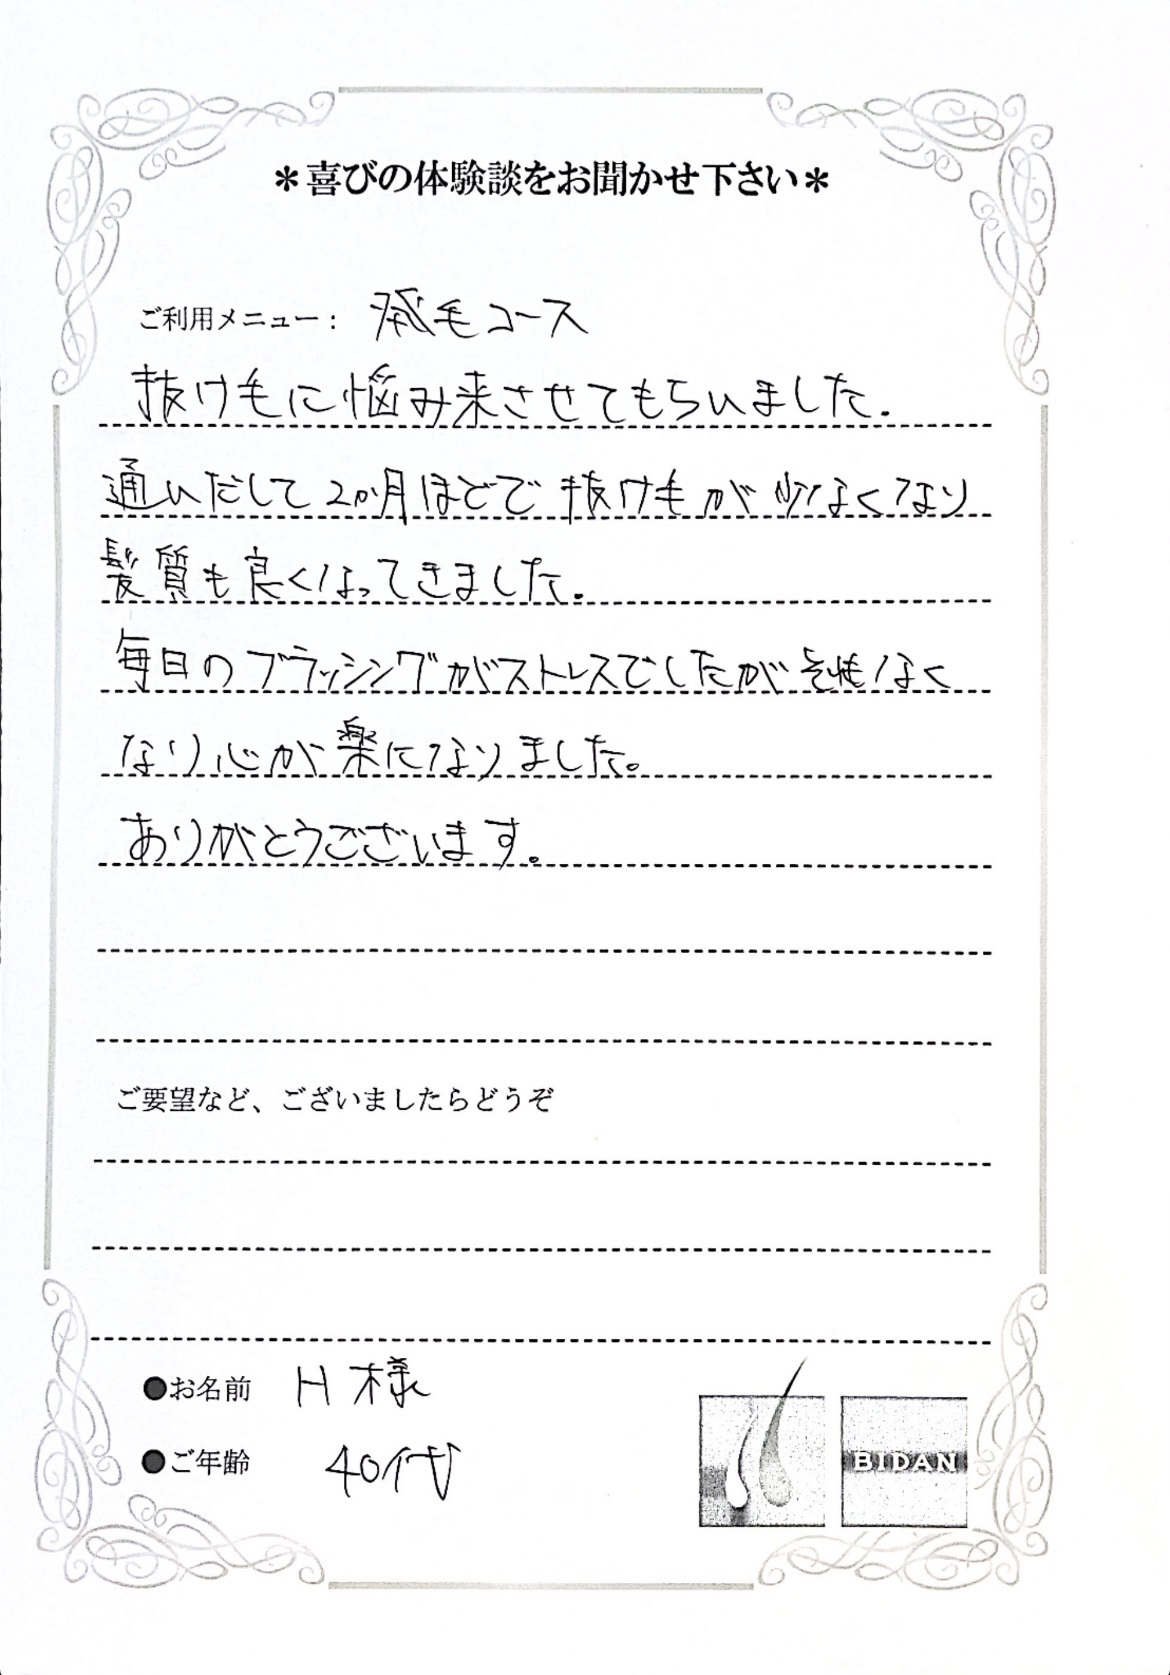 ＊喜びの体験談をお聞かせ下さい＊
ご利用メニュー： 発毛コース
抜け毛に悩み来させてもらいました.
通いだして2か月ほどで抜け毛が少なくなり
髪質も良くなってきました.
毎日のブラッシングがストレスでしたがそれもなく
なり心が楽になりました。
ありがとうございます。
ご要望など、ございましたらどうぞ
●お名前 H様
●ご年齢 40代
BIDAN